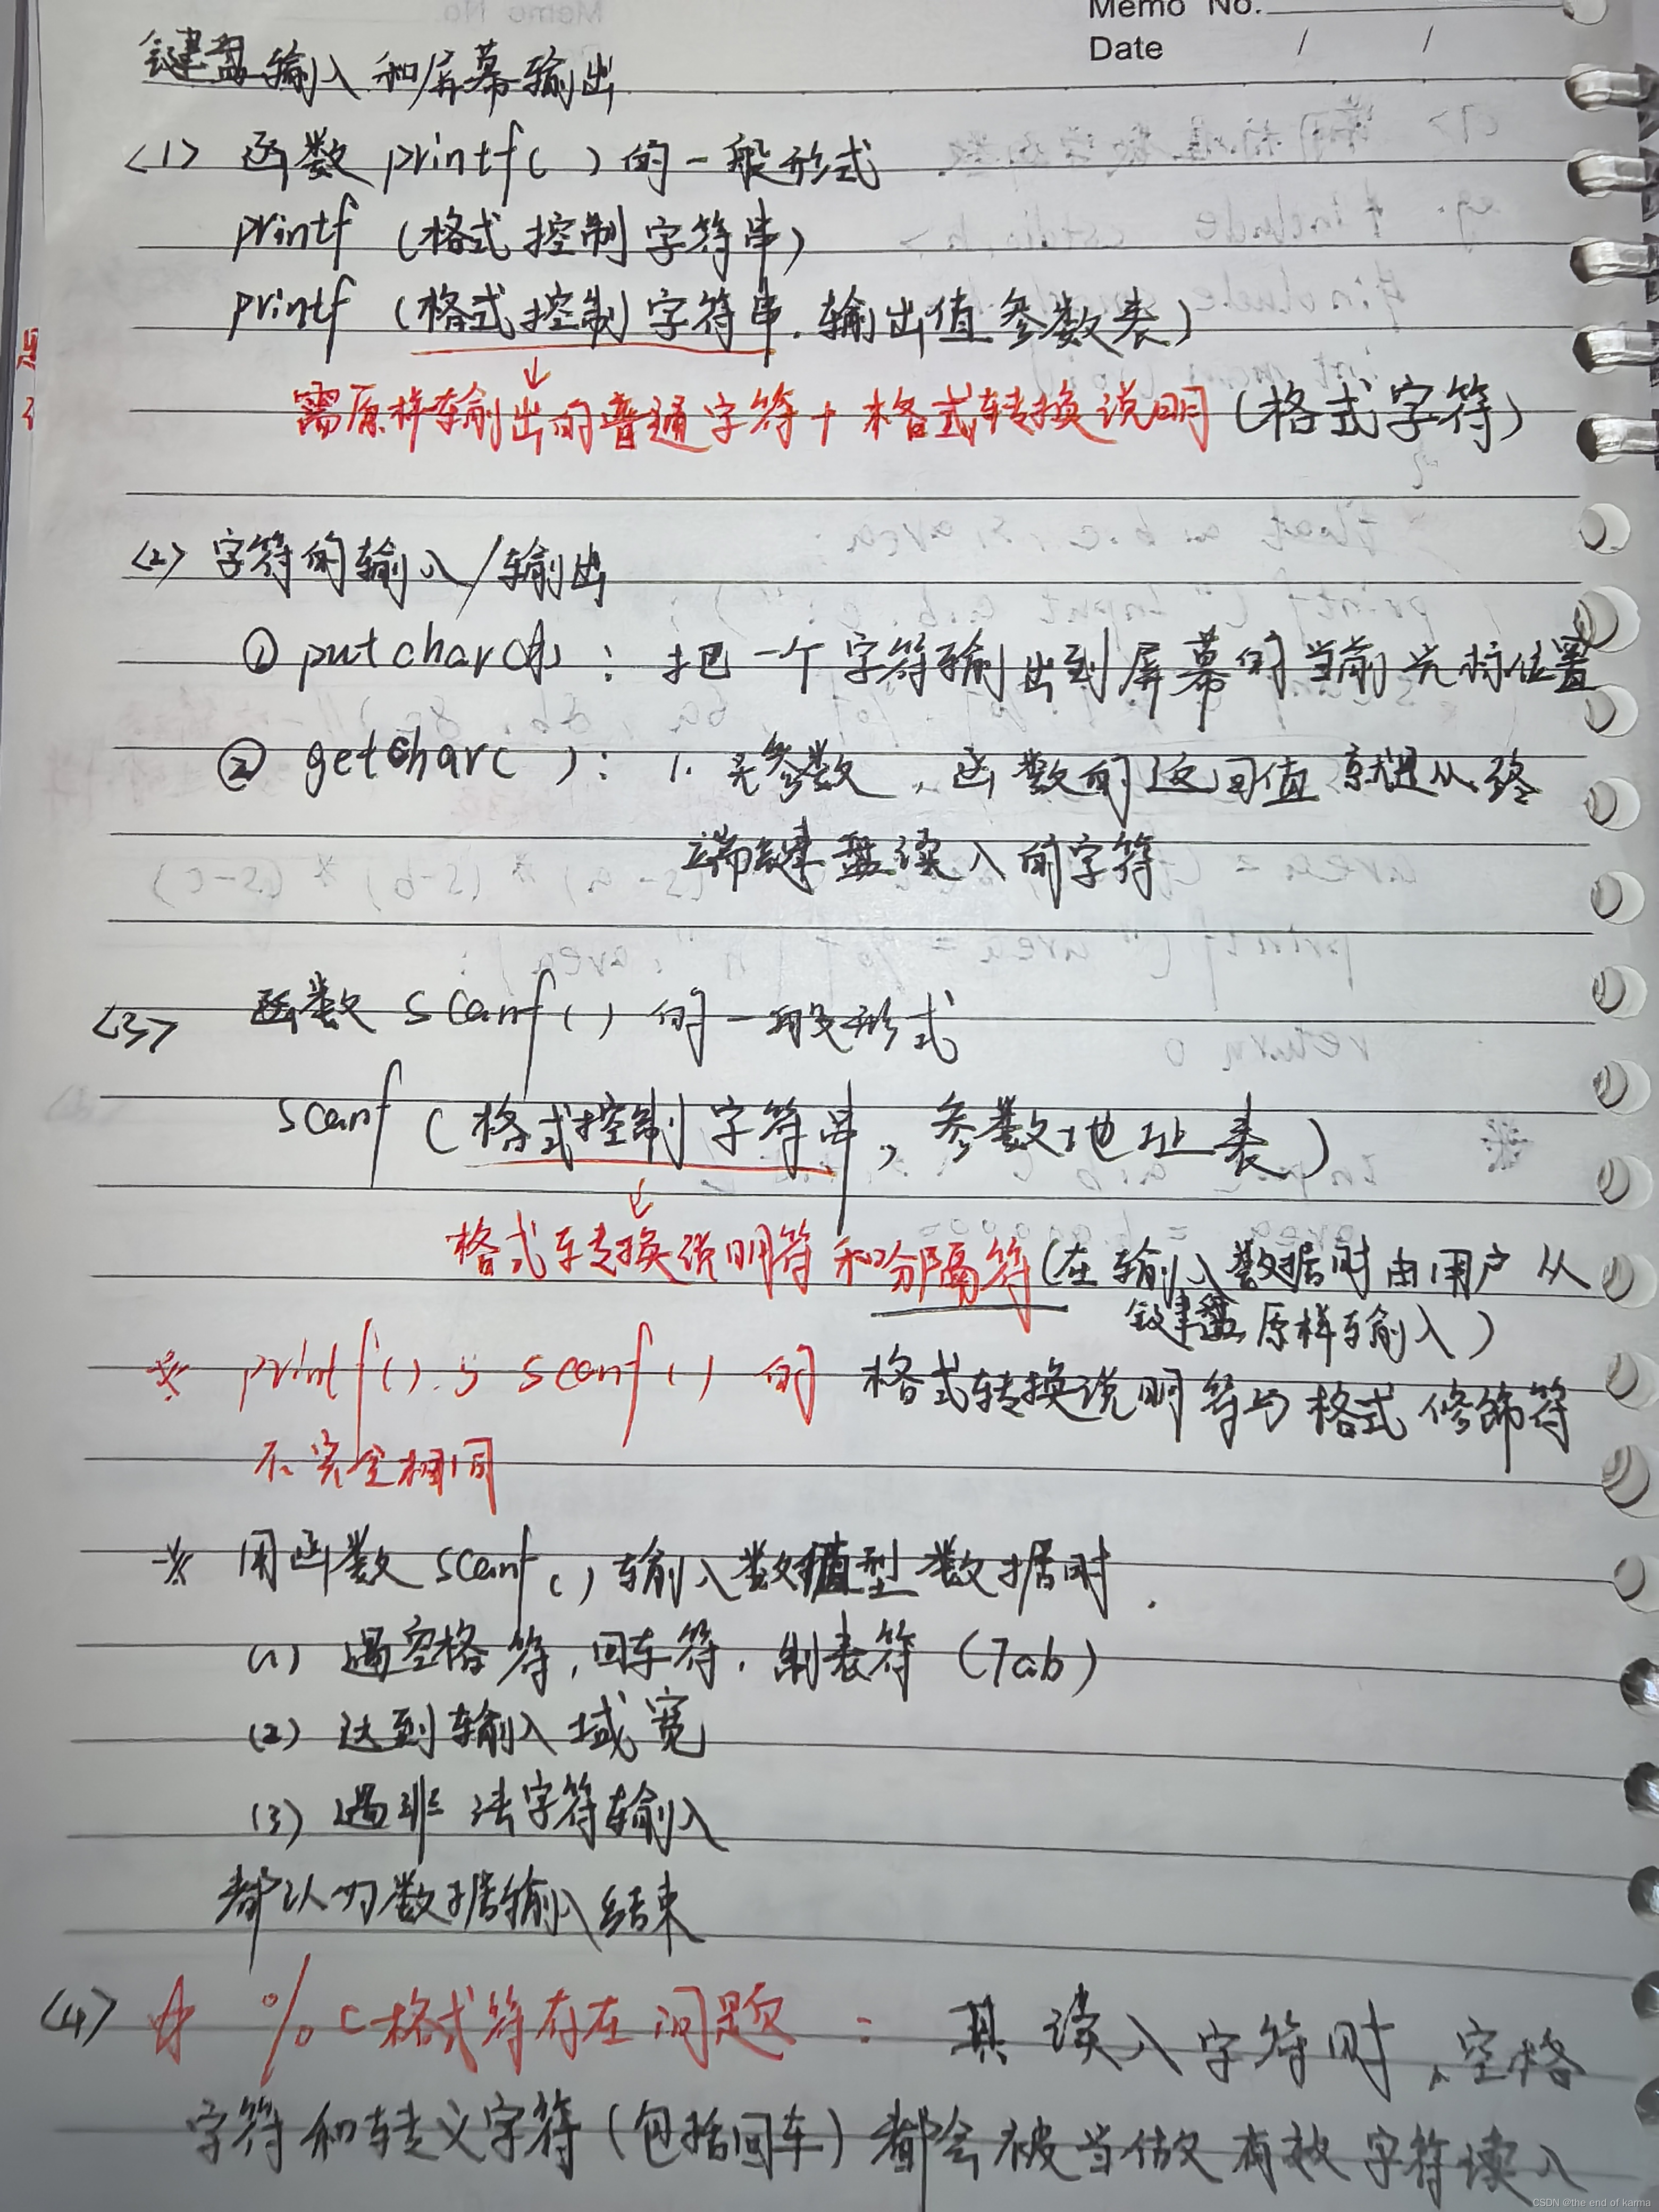 Memo No.
Date / /
键盘输入和屏幕输出
<1> 函数printf( )的一般形式
printf (格式控制字符串)
printf (格式控制字符串,输出值参数表)
↓
需原样输出的普通字符+格式转换说明(格式字符)
<2> 字符的输入/输出
① putchar( ): 把一个字符输出到屏幕的当前光标位置
② getchar( ): 1. 无参数,函数的返回值就是从终
端键盘读入的字符
<3> 函数scanf( )的一般形式
scanf (格式控制字符串,参数地址表)
↓
格式转换说明符和分隔符(在输入数据时由用户从
键盘原样输入)
※ printf( )与scanf( )的格式转换说明符与格式修饰符
不完全相同
※ 用函数scanf( )输入数值型数据时.
(1) 遇空格符,回车符,制表符 (Tab)
(2) 达到输入域宽
(3) 遇非法字符输入
都认为数据输入结束
<4> ☆ %c格式符存在问题: 其读入字符时,空格
字符和转义字符(包括回车)都会被当做有效字符读入
CSDN @the end of karma